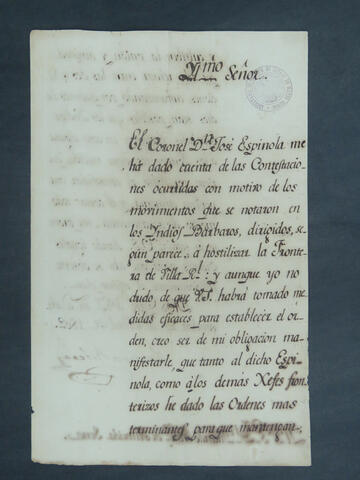 Yl.mo Señor.
El Coronel D.n José Espinola me
há dado cuenta de las Contestacio-
nes ócurridas con motivo de los
movimientos que se notaron en
los Indios Bárbaros, dirigidos, se-
gun parece á hostilizar la Fronte-
ra de Villa R.l: y aunque yo no
dudo, de que V.S. habrá tomado me-
didas eficaces para establecer el or-
den, creo ser de mi obligacion ma-
nifestarle, que tanto al dicho Espi-
nola, como á los demás Xefes fron-
terizos he dado las Ordenes mas
terminantes para que mantengan,